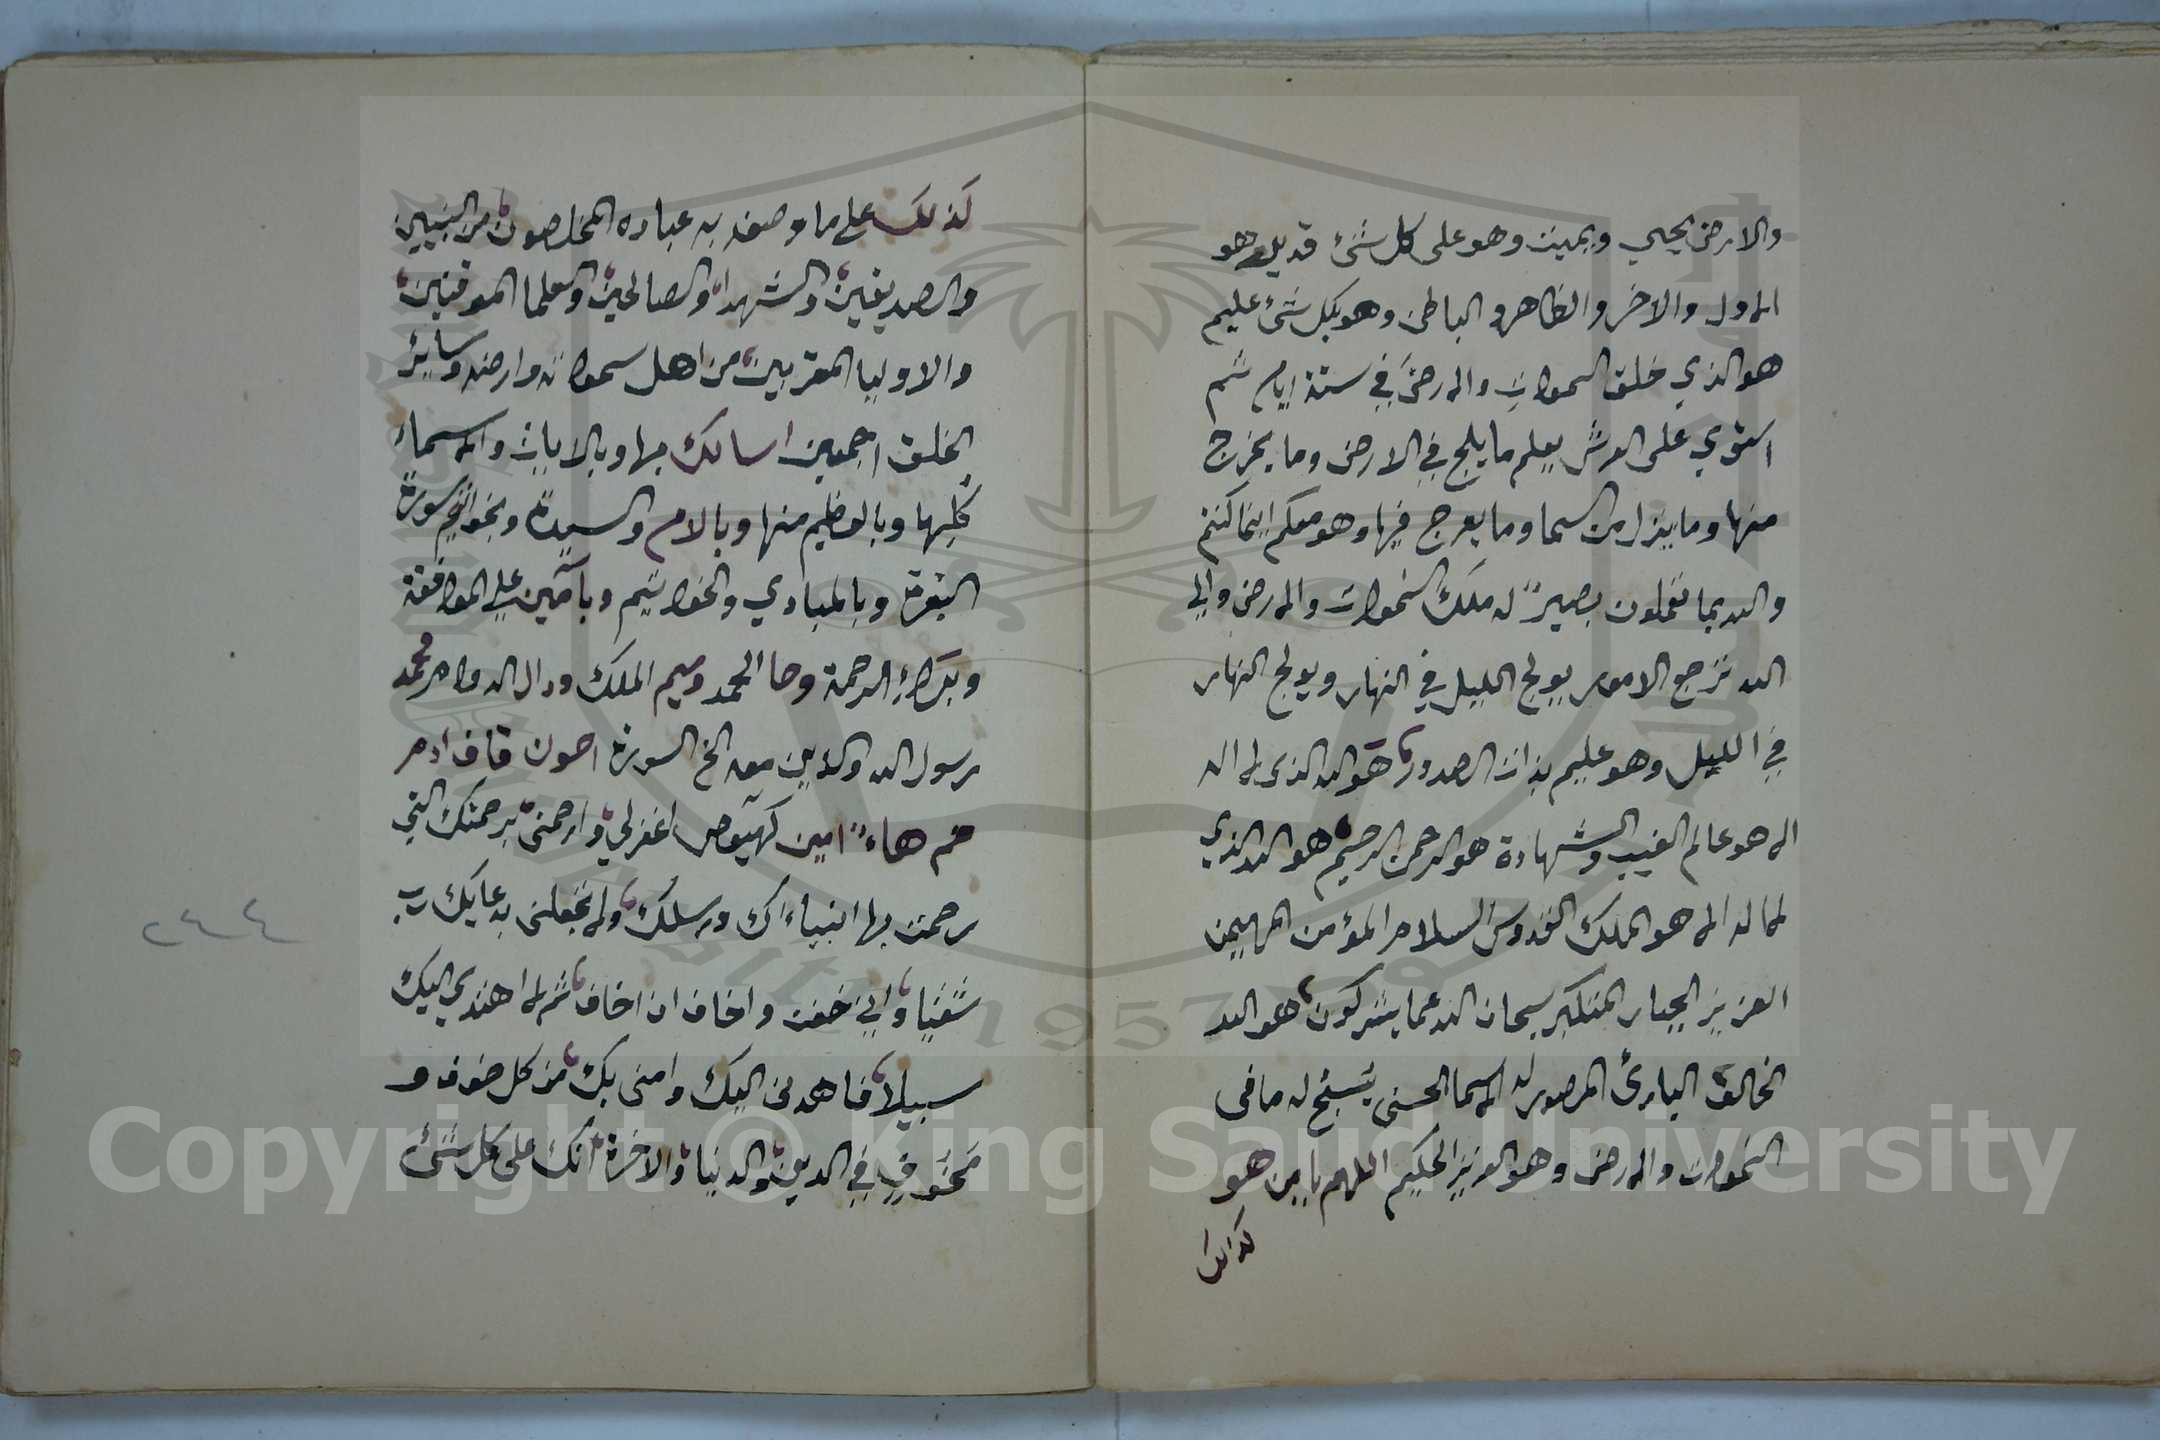 والارض يحيي ويميت وهو على كل شئ قدير هو
الاول والاخر والظاهر والباطن وهو بكل شئ عليم
هو الذي خلق السموات والارض في ستة ايام ثم
استوي على العرش يعلم ما يلج في الارض وما يخرج
منها وما ينزل من السما وما يعرج فيها وهو معكم اينما كنتم
والله بما تعملون بصير له ملك السموات والارض والي
الله ترجع الامور يولج الليل في النهار ويولج النهار
في الليل وهو عليم بذات الصدور هو الله الذي لا اله
الا هو عالم الغيب والشهادة هو الرحمن الرحيم هو الله الذي
لا اله الا هو الملك القدوس السلام المؤمن المهيمن
العزيز الجبار المتكبر سبحان الله عما يشركون هو الله
الخالق البارئ المصور له الاسما الحسنى يسبح له ما في
السموات والارض وهو العزيز الحكيم اللهم يا من هو
كذلك
كذلك على ما وصفه به عباده المخلصون من النبيين
والصديقين والشهداء والصالحين والعلما الموقنين
والاوليا المقربين من اهل سمواته وارضه وسائر
الخلق اجمعين اسالك بها وبالايات والاسماء
كلها وبالعظيم منها وبالام والسيدة وبخواتيم سورة
البقرة وبالمبادي والخواتيم وبآمين علي الموافقة
وبحاء الرحمة وحا الحمد وميم الملك ودال الدوام محمد
رسول الله والذين معه الخ السورة احون قاف ادم
حم هاء امين كهيعص اغفر لي وارحمني برحمتك التي
رحمت بها انبياءك ورسلك ولا تجعلني بدعايك رب
شقيا واني خفت واخاف ان اخاف ثم لا اهتدي اليك
سبيلا فاهدني اليك وامني بك من كل خوف و
مخوف في الدين والدنيا والاخرة انك على كل شئ
٢٤٤
Copyright © King Saud University
1957